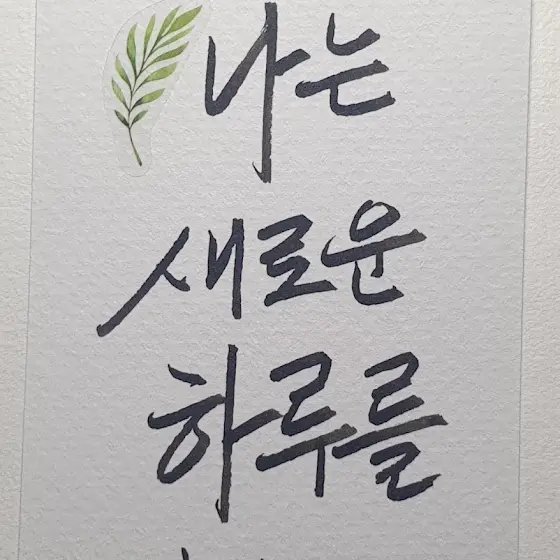 나는
새로운
하루를